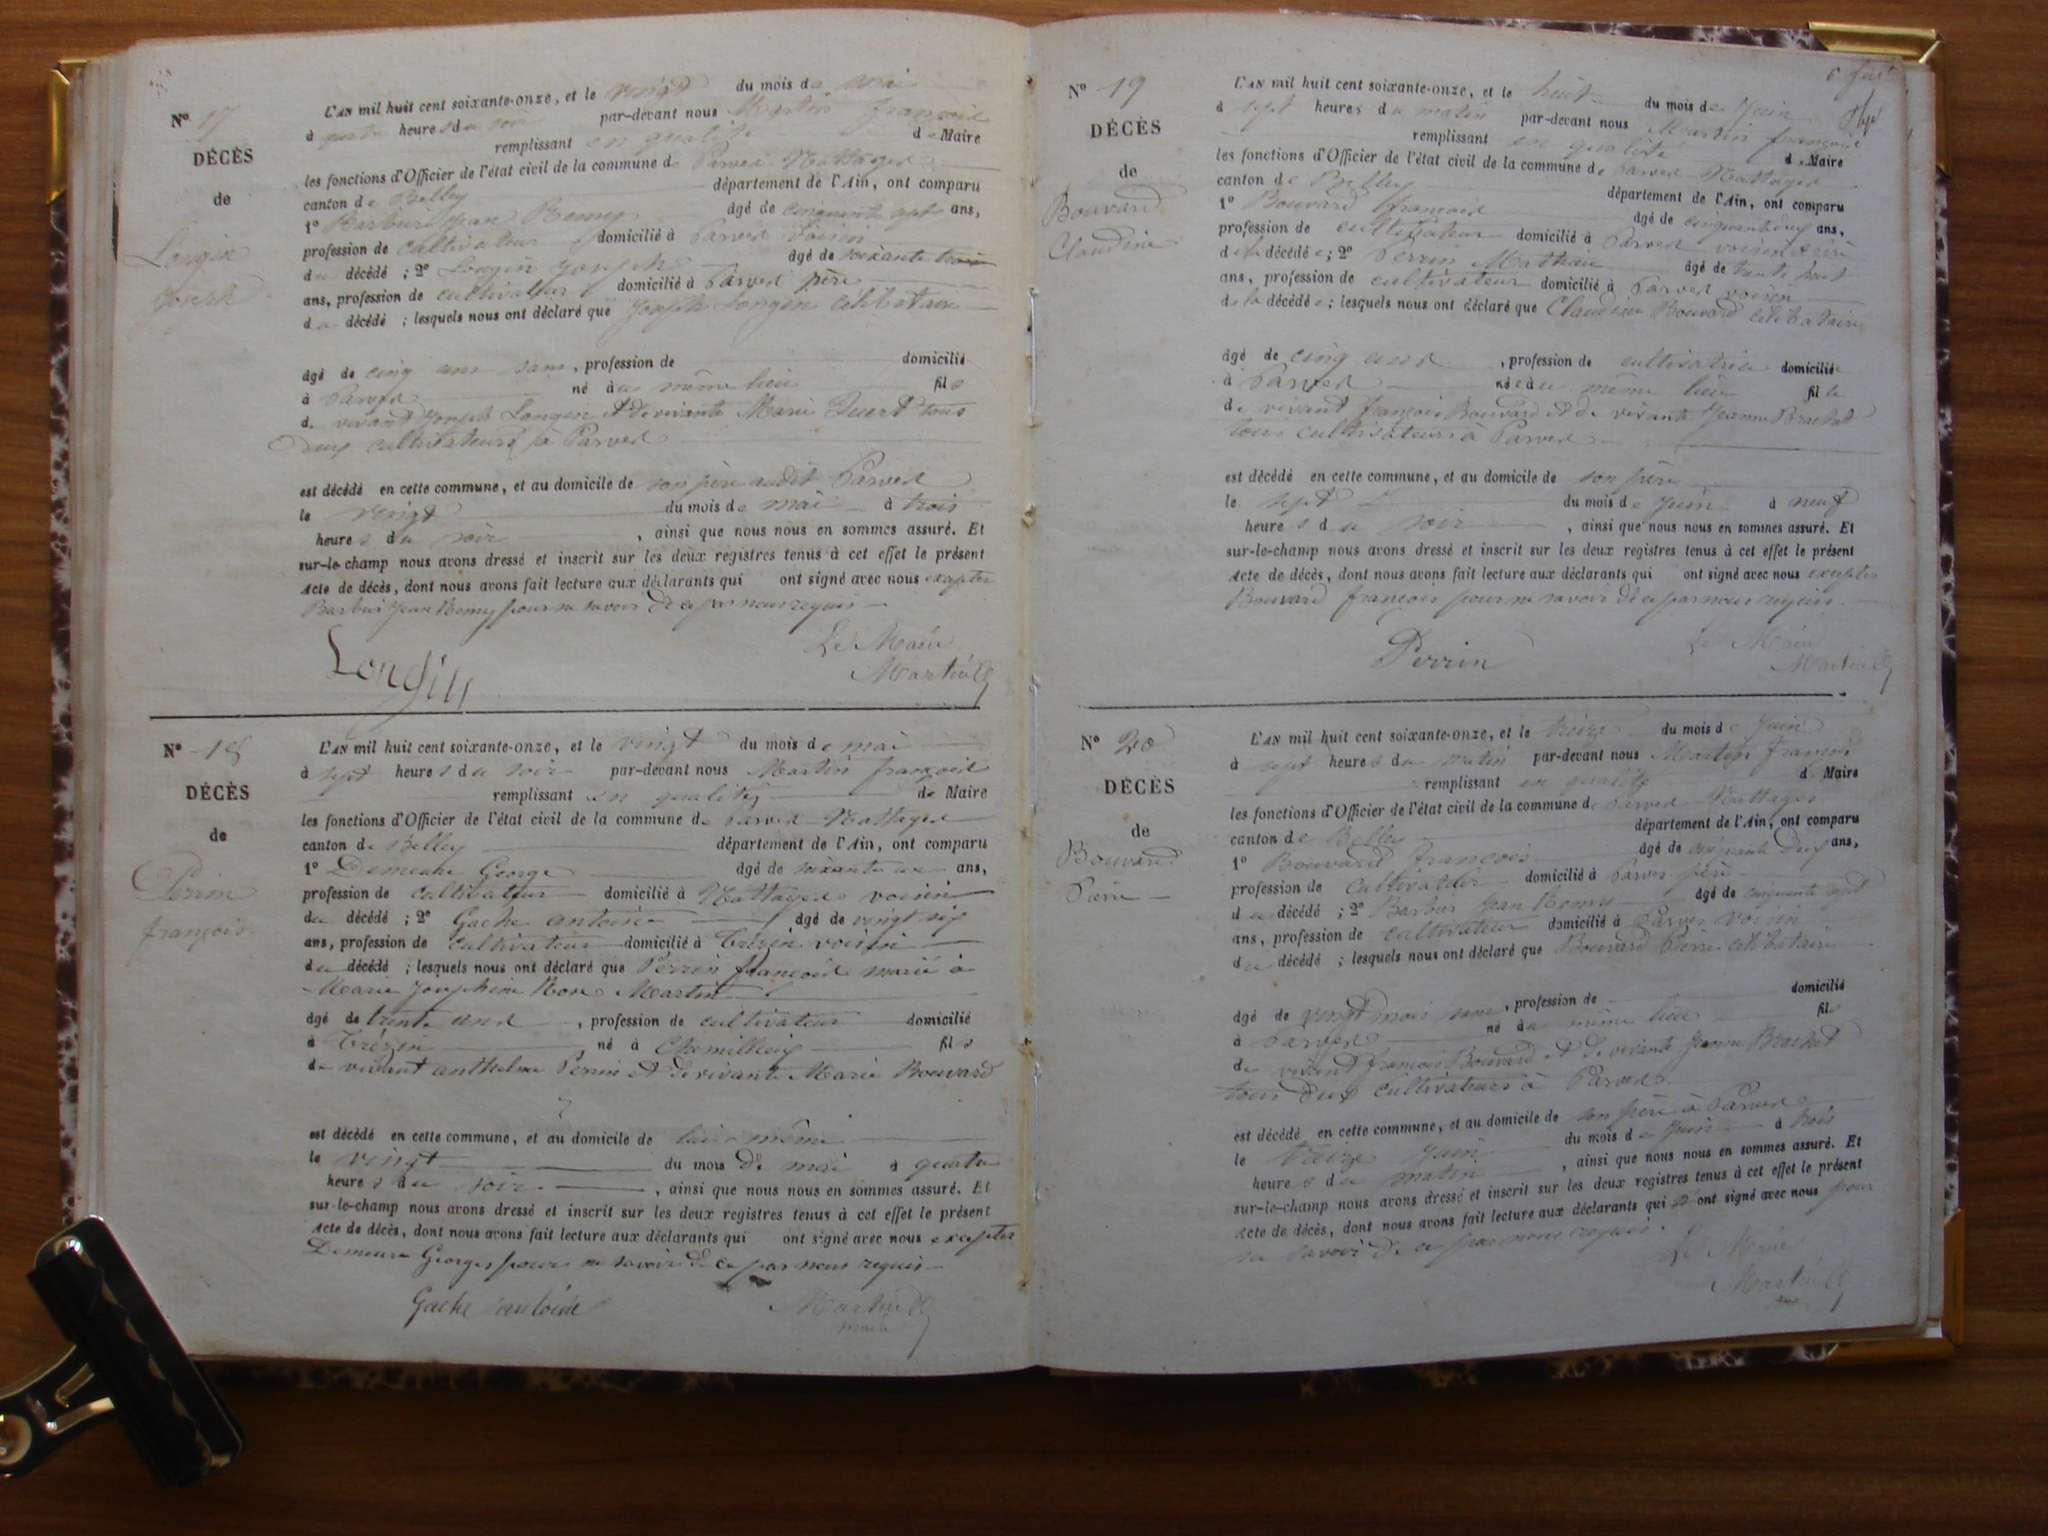 N° 17
DÉCÈS
de
Longin
Joseph
L'AN mil huit cent soixante-onze, et le vingt du mois de mai
à quatre heures du soir par-devant nous Martin françois
remplissant en qualité de Maire
les fonctions d'Officier de l'état civil de la commune de Parves Nattages
canton de Belley département de l'Ain, ont comparu
1° Barbus Jean Remy âgé de cinquante sept ans,
profession de cultivateur domicilié à Parves voisin
du décédé ; 2° Longin Joseph âgé de soixante trois
ans, profession de cultivateur domicilié à Parves père
du décédé ; lesquels nous ont déclaré que Joseph Longin célibataire
âgé de cinq ans sans, profession de domicilié
à Parves né au même lieu fils
de vivant Joseph Longin et de vivante Marie tous
deux cultivateurs à Parves
est décédé en cette commune, et au domicile de son père audit Parves
le vingt du mois de mai à trois
heures du soir, ainsi que nous nous en sommes assuré. Et
sur-le-champ nous avons dressé et inscrit sur les deux registres tenus à cet effet le présent
Acte de décès, dont nous avons fait lecture aux déclarants qui ont signé avec nous excepter
Barbus Jean Remy pour ne savoir de ce par nous requis
Longin
Le Maire
Martin
N° 18
DÉCÈS
de
Perrin
françois
L'AN mil huit cent soixante-onze, et le vingt du mois de mai
à sept heures du soir par-devant nous Martin françois
remplissant en qualité de Maire
les fonctions d'Officier de l'état civil de la commune de Parves Nattages
canton de Belley département de l'Ain, ont comparu
1° Demeure George âgé de soixante un ans,
profession de cultivateur domicilié à Nattages voisin
du décédé ; 2° Gache antoine âgé de vingt six
ans, profession de cultivateur domicilié à Trézin voisin
du décédé ; lesquels nous ont déclaré que Perrin françois marié à
Marie Joséphine Rose Martin
âgé de trente ans, profession de cultivateur domicilié
à Trézin né à Chemillieu fils
de vivant anthelme Perrin et de vivante Marie Bouvard
est décédé en cette commune, et au domicile de lui même
le vingt du mois de mai à quatre
heures du soir, ainsi que nous nous en sommes assuré. Et
sur-le-champ nous avons dressé et inscrit sur les deux registres tenus à cet effet le présent
Acte de décès, dont nous avons fait lecture aux déclarants qui ont signé avec nous excepter
Demeure Georges pour ne savoir de ce par nous requis
Gache antoine
Martin
maire
N° 19
DÉCÈS
de
Bouvard
Claudine
L'AN mil huit cent soixante-onze, et le huit du mois de Juin
à sept heures du matin par-devant nous Martin françois
remplissant en qualité de Maire
les fonctions d'Officier de l'état civil de la commune de Parves Nattages
canton de Belley département de l'Ain, ont comparu
1° Bouvard françois âgé de cinquante deux ans,
profession de cultivateur domicilié à Parves père
de la décédée ; 2° Perrin Mathieu âgé de trente huit
ans, profession de cultivateur domicilié à Parves voisin
de la décédée ; lesquels nous ont déclaré que Claudine Bouvard célibataire
âgé de cinq ans, profession de cultivatrice domiciliée
à Parves née au même lieu fille
de vivant françois Bouvard et de vivante Jeanne Brachet
tous cultivateurs à Parves
est décédé en cette commune, et au domicile de son père
le sept du mois de Juin à neuf
heures du soir, ainsi que nous nous en sommes assuré. Et
sur-le-champ nous avons dressé et inscrit sur les deux registres tenus à cet effet le présent
Acte de décès, dont nous avons fait lecture aux déclarants qui ont signé avec nous excepter
Bouvard françois pour ne savoir de ce par nous requis
Perrin
Le Maire
Martin
N° 20
DÉCÈS
de
Bouvard
Pierre
L'AN mil huit cent soixante-onze, et le treize du mois de Juin
à sept heures du matin par-devant nous Martin françois
remplissant en qualité de Maire
les fonctions d'Officier de l'état civil de la commune de Parves Nattages
canton de Belley département de l'Ain, ont comparu
1° Bouvard françois âgé de cinquante deux ans,
profession de cultivateur domicilié à Parves père
du décédé ; 2° Barbus Jean Remy âgé de cinquante sept
ans, profession de cultivateur domicilié à Parves voisin
du décédé ; lesquels nous ont déclaré que Bouvard Pierre célibataire
âgé de vingt mois sans, profession de domicilié
à Parves né au même lieu fils
de vivant françois Bouvard et de vivante Jeanne Brachet
tous deux cultivateurs à Parves
est décédé en cette commune, et au domicile de son père à Parves
le treize Juin du mois de Juin à trois
heures du matin, ainsi que nous nous en sommes assuré. Et
sur-le-champ nous avons dressé et inscrit sur les deux registres tenus à cet effet le présent
Acte de décès, dont nous avons fait lecture aux déclarants qui ont signé avec nous pour
ne savoir de ce par nous requis
Le Maire
Martin